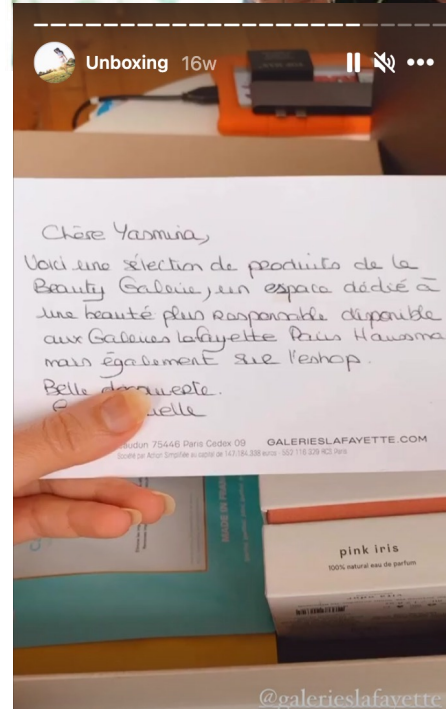 Unboxing 16w
Chère Yasmina,
Voici une sélection de produits de la
Beauty Galerie, un espace dédié à
une beauté plus responsable disponible
aux Galeries Lafayette Paris Haussma
mais également sur l'eshop.
Belle découverte.
elle
audun 75446 Paris Cedex 09 GALERIESLAFAYETTE.COM
Société par Action Simplifiée au capital de
MADE IN FRAN
pink iris
100% natural eau de parfum
@galerieslafayette